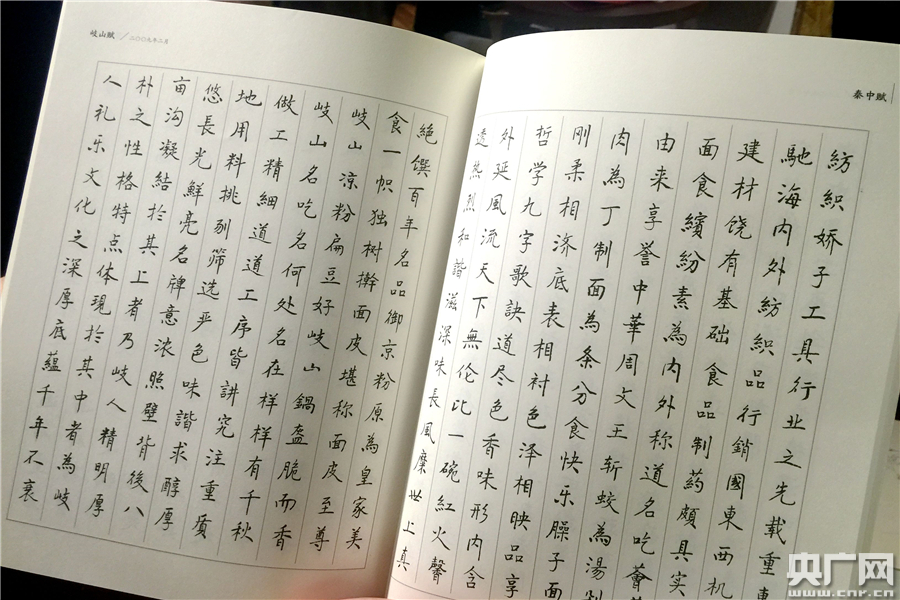 秦中賦
紡織娇子工具行业之先载重
馳海内外紡織品行銷國東西机
建材饶有基础食品制药頗具实
面食繽紛素為内外称道名吃薈
由来享誉中華周文王斩蛟為湯
肉為丁制面為条分食快乐臊子面
刚柔相济底表相衬色泽相映品享
哲学九字歌訣道尽色香味形内含
外延風流天下無伦比一碗紅火馨
透热烈和諧滋深味長風糜世上真
岐山賦 / 二〇〇九年二月
絶馔百年名品御京粉原為皇家美
食一帜独树擀面皮堪称面皮至尊
岐山凉粉扁豆好岐山鍋盔脆而香
岐山名吃名何处名在样样有千秋
做工精细道道工序皆讲究注重質
地用料挑剔筛选严色味諧求醇厚
悠長光鮮亮名牌意浓照壁背後八
亩沟凝結於其上者乃岐人精明厚
朴之性格特点体現於其中者為岐
人礼乐文化之深厚底蕴千年不衰
央广网
www.cnr.cn